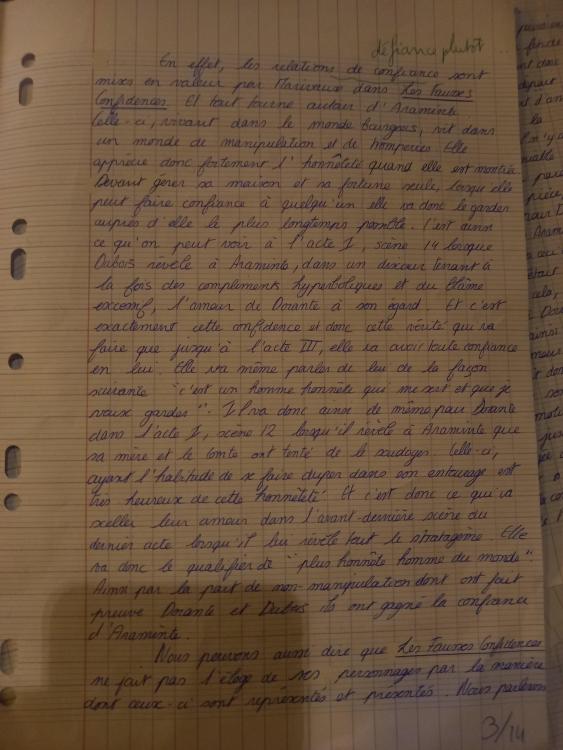 défiance plutôt ...
En effet, les relations de confiance sont
mises en valeur par Marivaux dans Les Fausses
Confidences. Et tout tourne autour d'Araminte.
Celle-ci, vivant dans le monde bourgeois, vit dans
un monde de manipulation et de tromperies. Elle
apprécie donc fortement l'honnêteté quand elle est montrée.
Devant gérer sa maison et sa fortune seule, lorsqu'elle
peut faire confiance à quelqu'un elle va donc le garder
auprès d'elle le plus longtemps possible. C'est ainsi
ce qu'on peut voir à l'acte I, scène 14 lorsque
Dubois révèle à Araminte, dans un discour tenant à
la fois des compliments hyperboliques et du blâme
excessif, l'amour de Dorante à son égard. Et c'est
exactement cette confidence et donc cette vérité qui va
faire que jusqu'à l'acte III, elle va avoir toute confiance
en lui. Elle va même parler de lui de la façon
suivante "c'est un homme honnête qui me sert et que je
veux garder". Il va donc ainsi de même pour Dorante
dans l'acte I, scène 12 lorsqu'il révèle à Araminte que
sa mère et le Comte ont tenté de le soudoyer. Celle-ci,
ayant l'habitude de se faire duper dans son entourage est
très heureux de cette honnêteté. Et c'est donc ce qui va
sceller leur amour dans l'avant-dernière scène du
dernier acte lorsqu'il lui révèle tout le stratagème. Elle
va donc le qualifier de "plus honnête homme du monde".
Ainsi par la part de non-manipulation dont ont fait
preuve Dorante et Dubois ils ont gagné la confiance
d'Araminte.
Nous pouvons aussi dire que Les Fausses Confidences
ne fait pas l'éloge de ses personnages par la manière
dont ceux-ci sont représentés et présentés. Nous parlerons
3/14